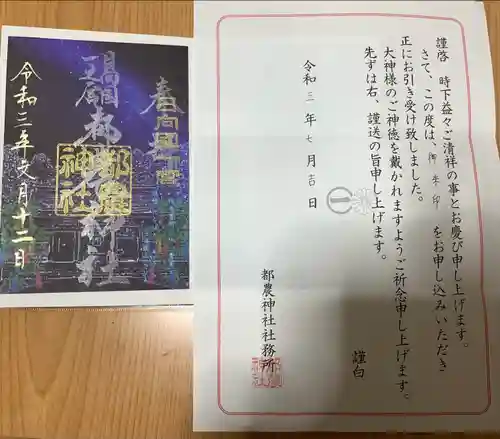 謹啓　時下益々ご清祥の事とお慶び申し上げます。
さて、この度は、御朱印をお申し込みいただき
正にお引き受け致しました。
大神様のご神徳を戴かれますようご祈念申し上げます。
先ずは右、謹送の旨申し上げます。
謹白
令和三年七月吉日
都農神社社務所
奉拝
日向国一宮
都農神社
都農神社
令和三年文月十二日